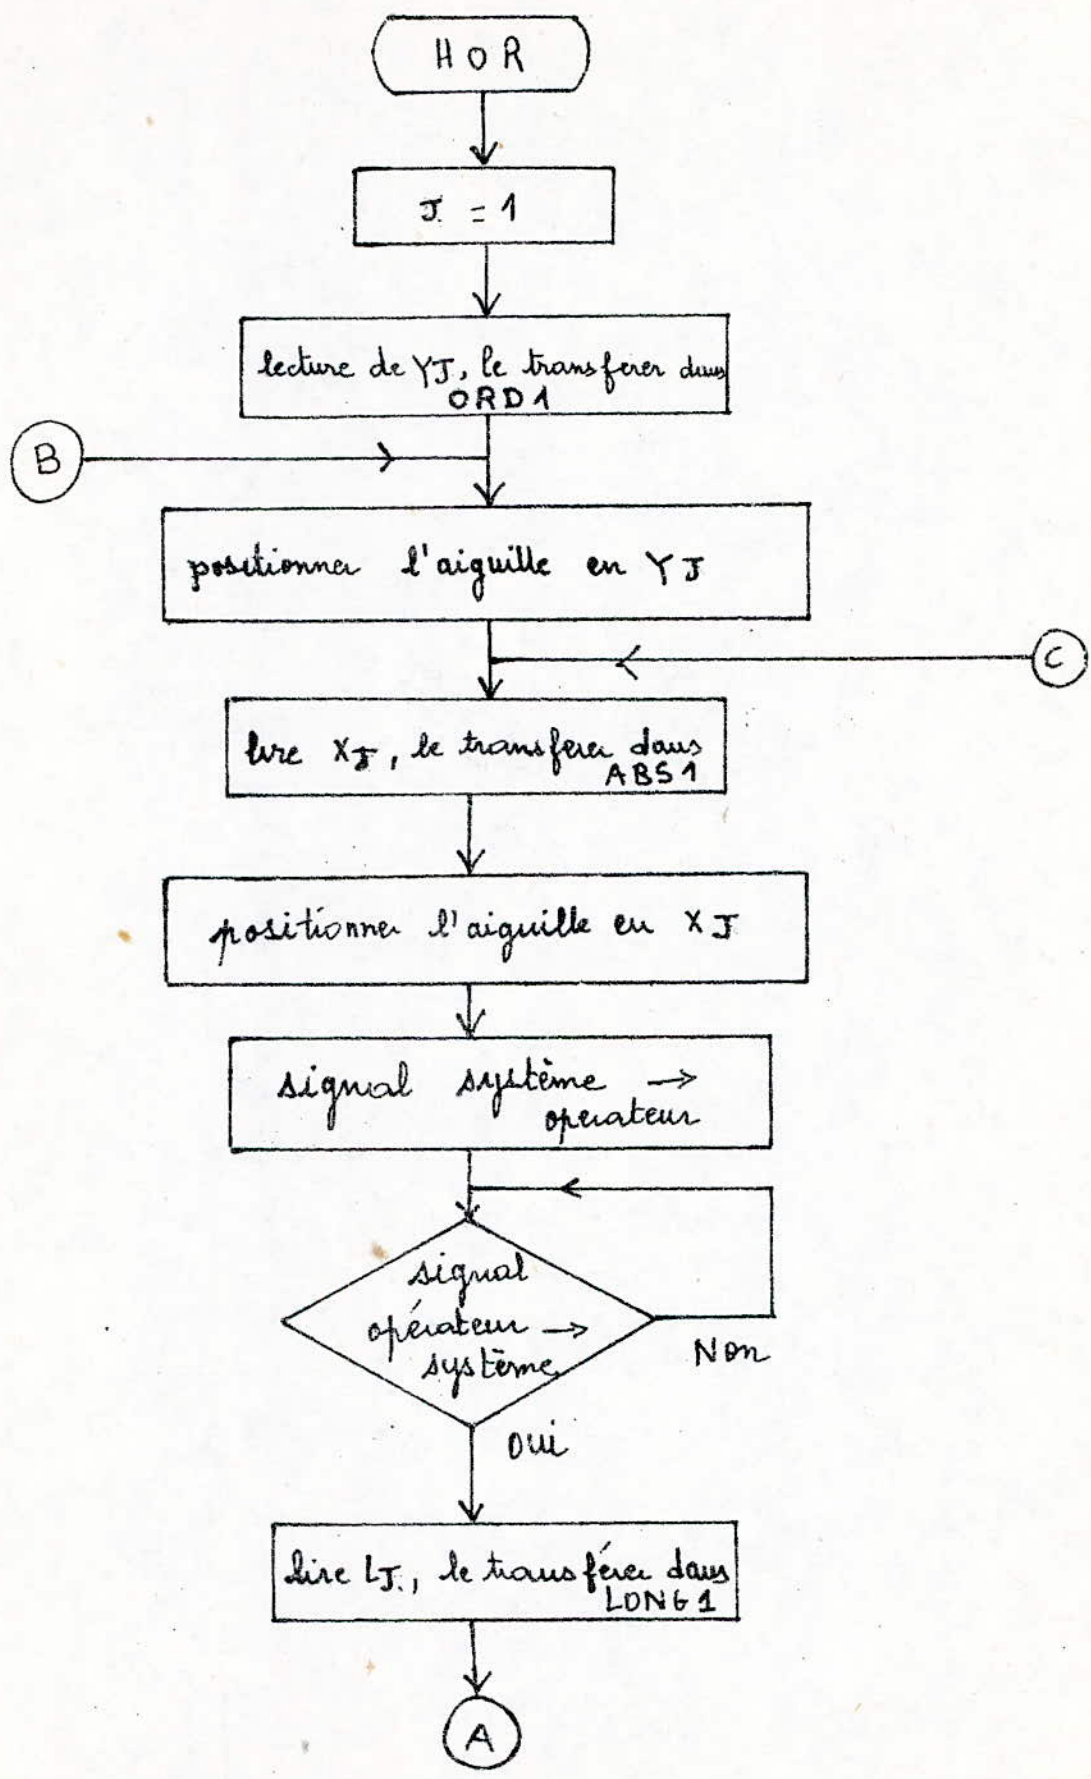 HOR
J = 1
lecture de YJ, le transferer dans
ORD1
B
positionner l'aiguille en YJ
C
lire XJ, le transferer dans
ABS1
positionner l'aiguille en XJ
signal système →
operateur
signal
opérateur →
système
Non
OUI
lire LJ, le transférer dans
LONG1
A